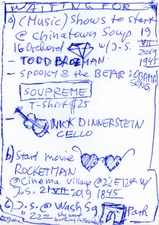 WAITING FOR
a) (Music) Shows to start
@ chinatown Soup 19
16 Orchard W/J.S. VII
2019
- TODD BROZMAN 1945
- SPOOKY & THE BEAR : OBAMA SONG
SOUPREME
T-shirt $25
- NICK DINNERSTEIN
CELLO
b) Start movie
ROCKETMAN
@ Cinema Village @ 22E12th W/
J.S. 21 VII 2019 1845
c) J.S. @ Wash Sq Park